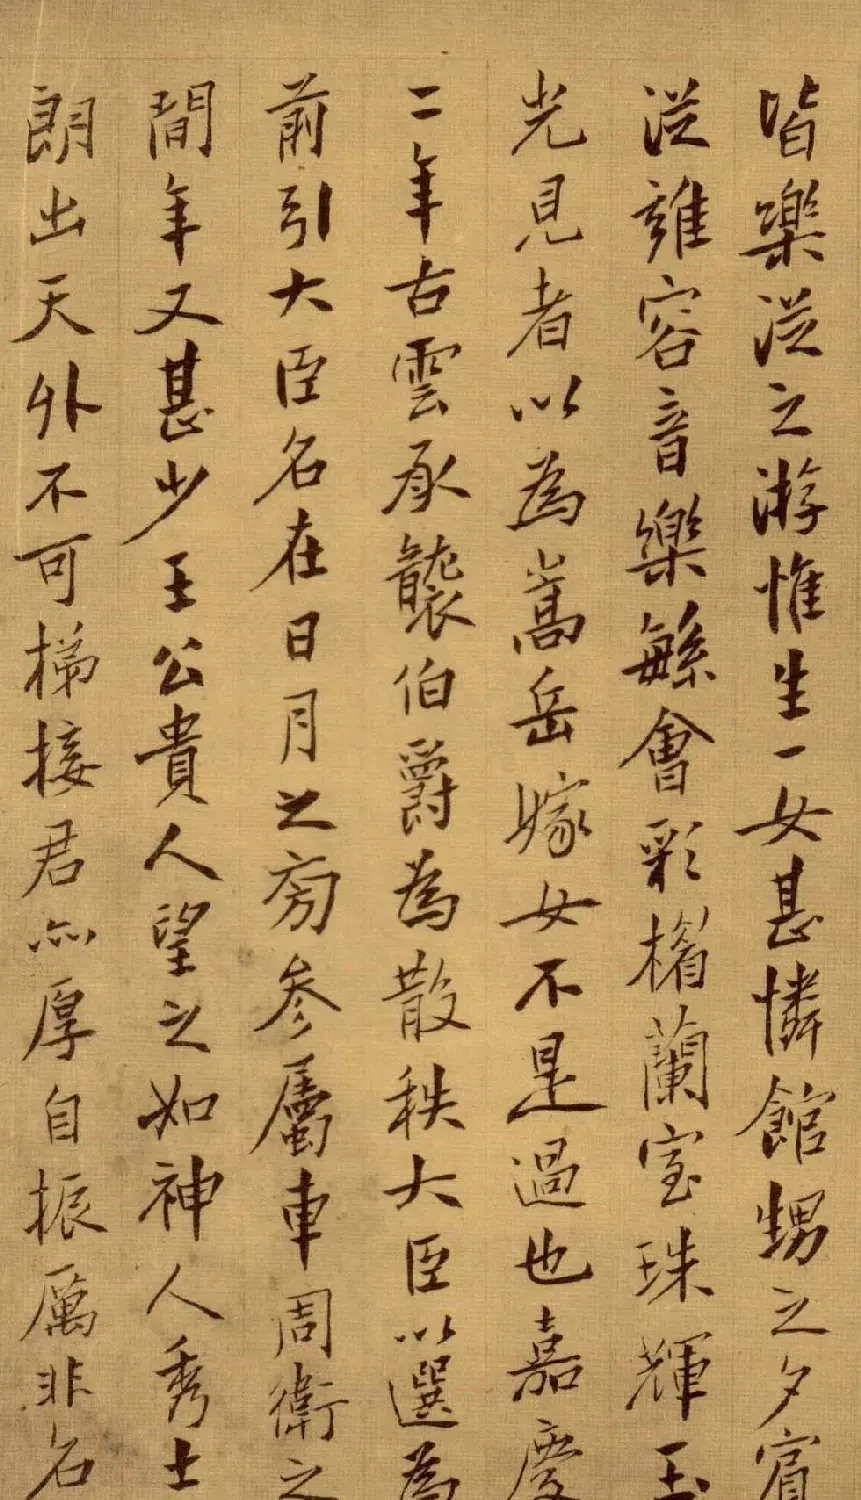 皆樂從之游惟生一女甚憐館甥之夕賓
從雜容音樂繇會彩楣蘭室珠輝玉
光見者以為嵩岳嫁女不是過也嘉慶
二年古雲承襲伯爵為散秩大臣以選為
前引大臣名在日月之旁參屬車周衛之
間年又甚少王公貴人望之如神人秀士
朗出天外不可梯接君亦厚自振厲非名